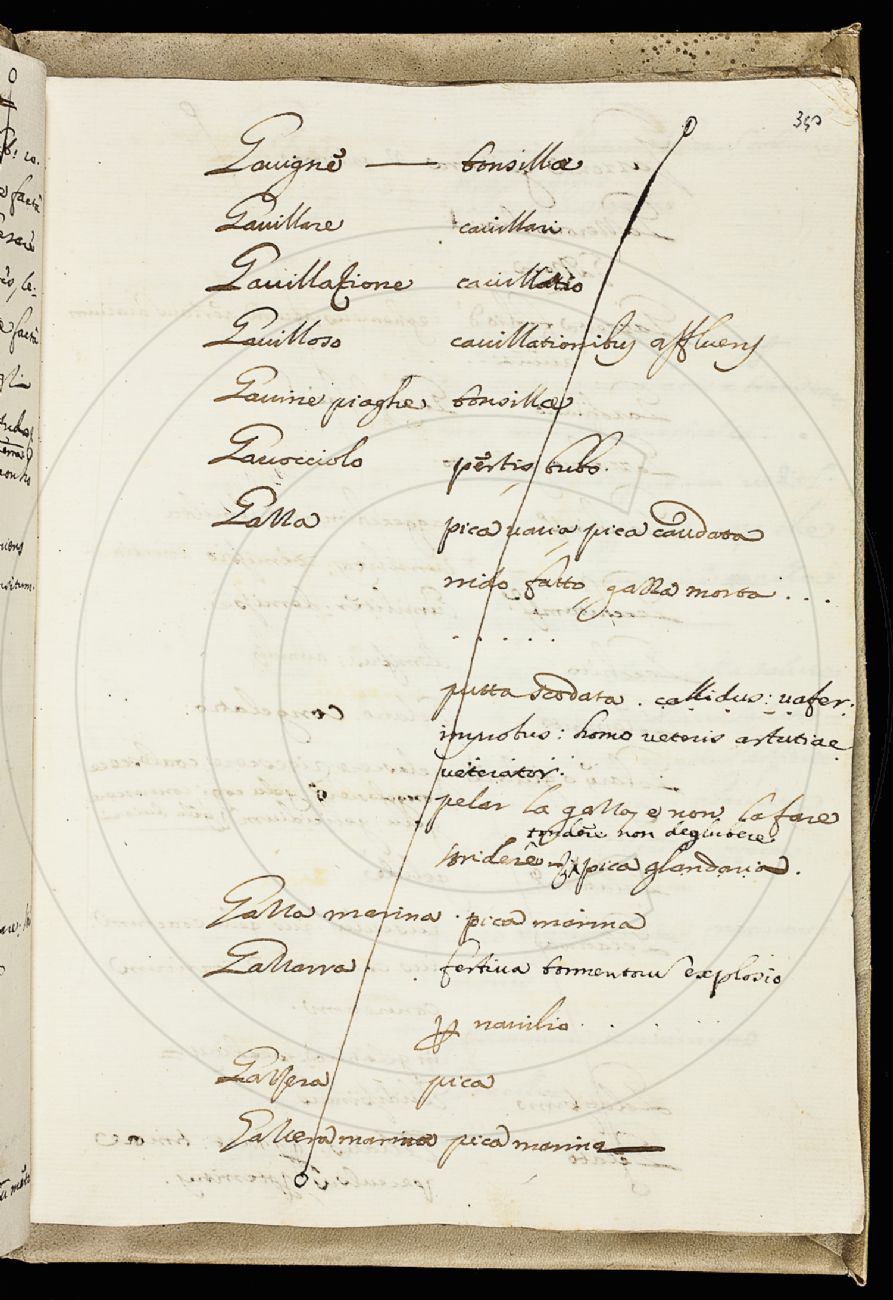 350
Gauigne — tonsillæ
Gauillare cauillari
Gauillatione cauillatio
Gauilloso cauillationibus affluens
Gauine piaghe tonsillæ
Gauocciolo pestis bubo.
Gazza pica uaria pica caudata
nido fatto gazza morta . . .
. . . . .
putta scodata . callidus: uafer:
homo ueteris astutiae
ueterator.
pelar la gazza, e non la fare
tondere non deglubere.
stridere pica glandaria.
Gazza marina . pica marina
Gazzarra . festiua tormentorum explosio
nauilio . .
Gazzera pica
Gazzera marina pica marina